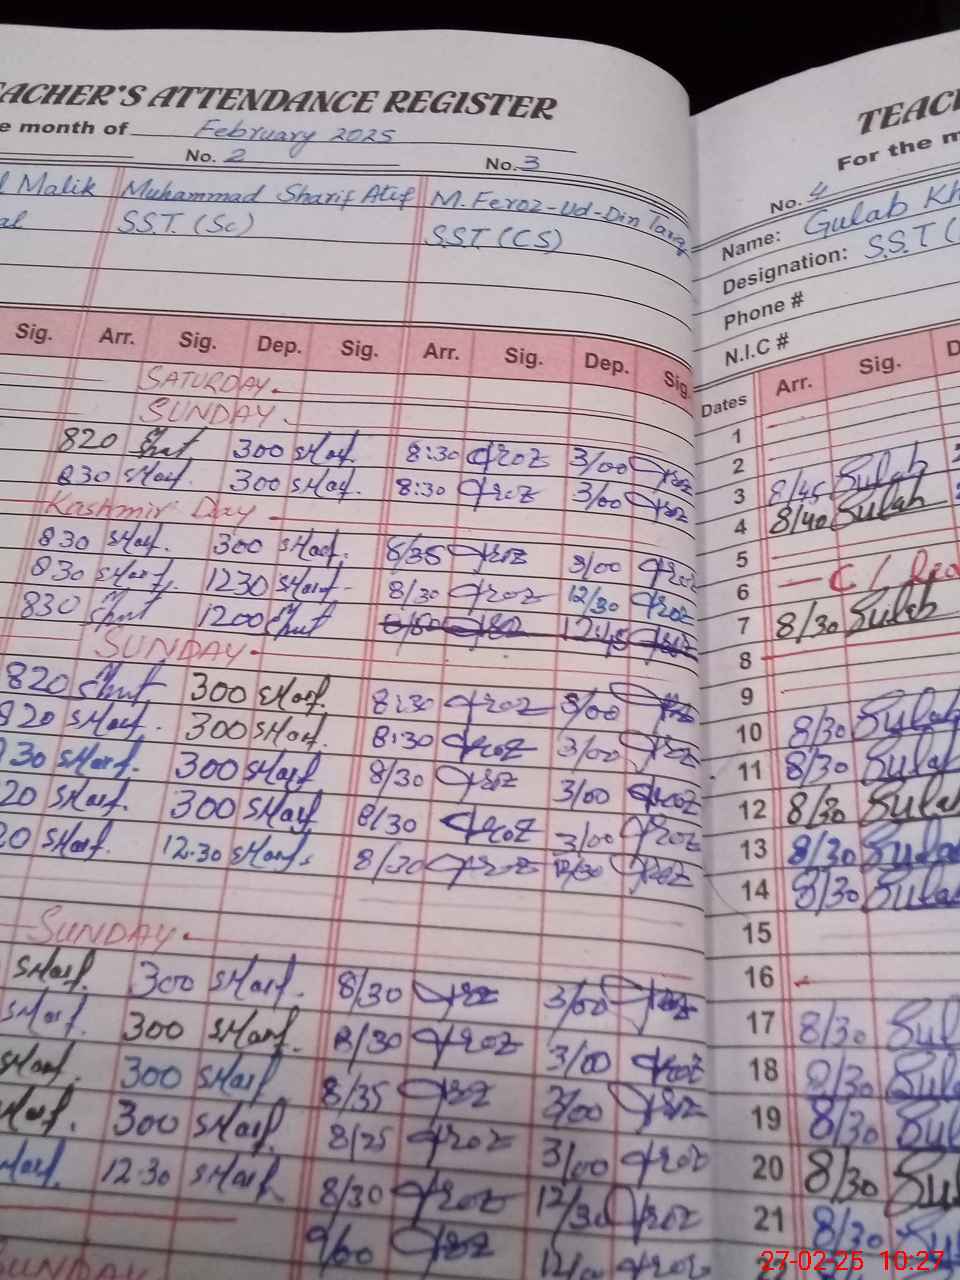 EACHER'S ATTENDANCE REGISTER
e month of February 2025
No. 2 No. 3
Malik Muhammad Sharif Atif M. Feroz-Ud-Din
S.S.T. (Sc) S.S.T (CS)
Sig. Arr. Sig. Dep. Sig. Arr. Sig. Dep. Sig.
SATURDAY
SUNDAY
820 300 sharf. 8:30 feroz 3/00
830 sharf. 300 sharf. 8:30 feroz 3/00
Kashmir Day
830 sharf. 300 sharf. 8/35 feroz 3/00 feroz
830 sharf. 1230 sharf 8/30 feroz 12/30 feroz
830 1200
SUNDAY
820 300 sharf. 8:30 feroz 3/00
820 sharf. 300 sharf. 8:30 feroz 3/00 feroz
30 sharf. 300 sharf 8/30 feroz 3/00 feroz
20 sharf. 300 sharf 8/30 feroz 3/00 feroz
20 sharf. 12.30 sharf. 8/30 feroz 12/30 feroz
SUNDAY
sharf. 300 sharf. 8/30 feroz 3/00
sharf. 300 sharf. 8/30 feroz 3/00 feroz
sharf. 300 sharf 8/35 feroz 3/00 feroz
sharf. 300 sharf. 8/25 feroz 3/00 feroz
sharf. 12.30 sharf 8/30 feroz 12/30 feroz
9/00 feroz feroz
SUNDAY
TEAC
For the m
No. 4
Name: Gulab Kh
Designation: S.S.T (
Phone #
N.I.C #
Dates Arr. Sig. D
1
2
3 8/45 Gulab
4 8/40 Gulab
5
6 C/
7 8/30 Gulab
8
9
10 8/30 Gulab
11 8/30 Gulab
12 8/30 Gulab
13 8/30 Gulab
14 8/30 Gulab
15
16
17 8/30 Gulab
18 8/30 Gulab
19 8/30 Gulab
20 8/30 Gu
21 8/30
27-02-25 10:27